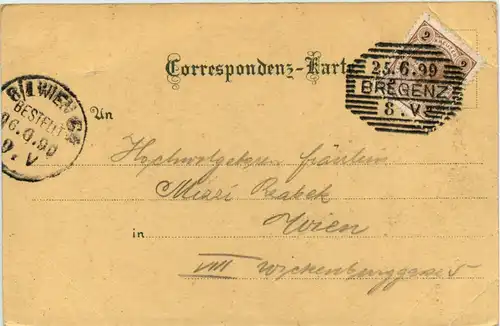 Correspondenz-Karte
2
2
25.6.99
BREGENZ
8.V
WIEN
BESTELLT
26.6.99
An
Hochwolgeboren Fräulein
Mizi
in
Wien
VIII Wickenburggasse 5